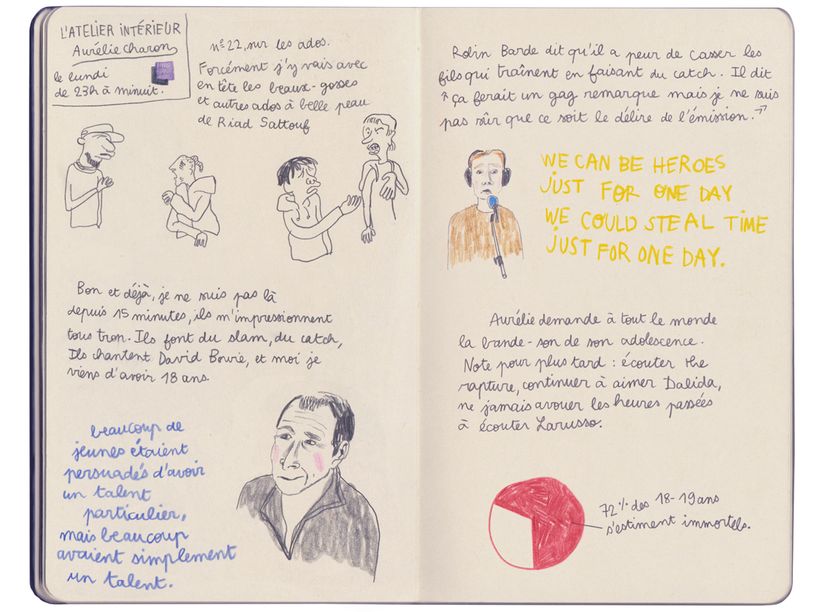 L'ATELIER INTÉRIEUR
Aurélie Charon
le lundi
de 23h à minuit.
n° 22, sur les ados.
Forcément j'y vais avec
en tête les beaux-gosses
et autres ados à belle peau
de Riad Sattouf
Bon et déjà, je ne suis pas là
depuis 15 minutes, ils m'impressionnent
tous trop. Ils font du slam, du catch,
Ils chantent David Bowie, et moi je
viens d'avoir 18 ans.
beaucoup de
jeunes étaient
persuadés d'avoir
un talent
particulier,
mais beaucoup
avaient simplement
un talent.
Robin Barde dit qu'il a peur de casser les
fils qui traînent en faisant du catch. Il dit
"ça ferait un gag remarque mais je ne suis
pas sûr que ce soit le délire de l'émission."
WE CAN BE HEROES
JUST FOR ONE DAY
WE COULD STEAL TIME
JUST FOR ONE DAY.
Aurélie demande à tout le monde
la bande-son de son adolescence.
Note pour plus tard : écouter the
rapture, continuer à aimer Dalida,
ne jamais avouer les heures passées
à écouter Larusso.
72% des 18-19 ans
s'estiment immortels.